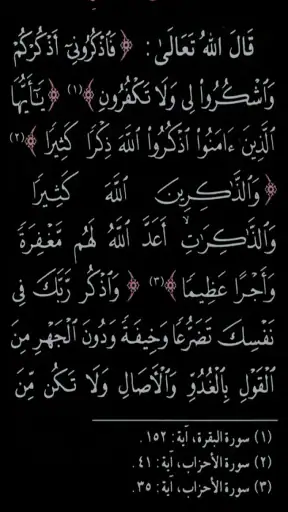 قَالَ اللهُ تَعَالَى : ﴿ فَٱذْكُرُونِىٓ أَذْكُرْكُمْ
وَٱشْكُرُوا۟ لِى وَلَا تَكْفُرُونِ ﴾ (١) ﴿ يَـٰٓأَيُّهَا
ٱلَّذِينَ ءَامَنُوا۟ ٱذْكُرُوا۟ ٱللَّهَ ذِكْرًا كَثِيرًا ﴾ (٢)
﴿ وَٱلذَّٰكِرِينَ ٱللَّهَ كَثِيرًا
وَٱلذَّٰكِرَٰتِ أَعَدَّ ٱللَّهُ لَهُم مَّغْفِرَةً
وَأَجْرًا عَظِيمًا ﴾ (٣) ﴿ وَٱذْكُر رَّبَّكَ فِى
نَفْسِكَ تَضَرُّعًا وَخِيفَةً وَدُونَ ٱلْجَهْرِ مِنَ
ٱلْقَوْلِ بِٱلْغُدُوِّ وَٱلْـَٔاصَالِ وَلَا تَكُن مِّنَ
(١) سورة البقرة، آية : ١٥٢ .
(٢) سورة الأحزاب، آية : ٤١ .
(٣) سورة الأحزاب، آية : ٣٥ .